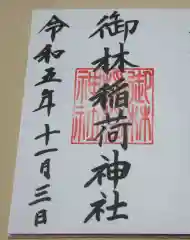 御林稲荷神社
令和五年十一月三日